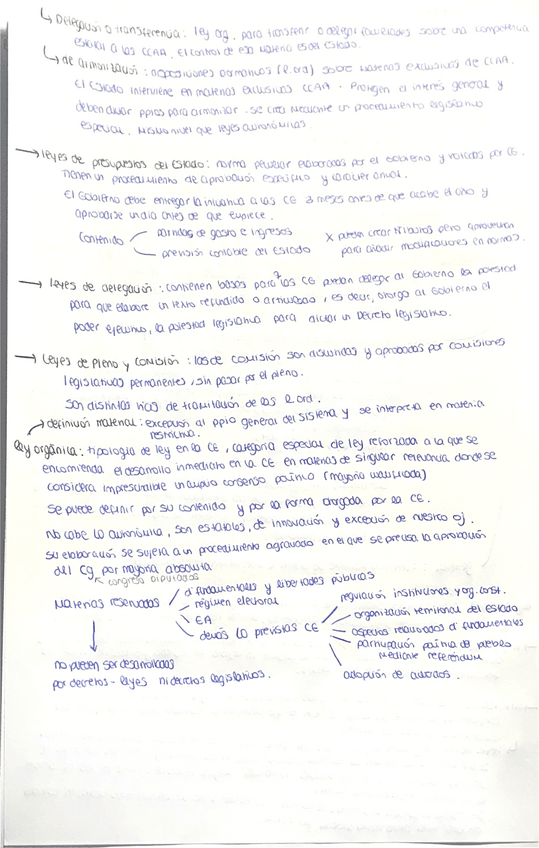 ↳ Delegación o transferencia: ley org. para transferir o delegar facultades sobre una competencia
estatal a las CCAA. El control de esa materia es del Estado.
↳ de armonización: disposiciones normativas (l.ord) sobre materias exclusivas de CCAA.
El Estado interviene en materias exclusivas CCAA. Protegen el interés general y
deben dictar ppios para armonizar. Se crea mediante un procedimiento legislativo
especial. Mismo nivel que leyes autonómicas.
→ Leyes de presupuestos del Estado: norma peculiar elaborada por el Gobierno y votadas por CG.
Tienen un procedimiento de aprobación específico y carácter anual.
El Gobierno debe entregar la iniciativa a las CG 3 meses antes de que acabe el año y
aprobarse un día antes de que empiece.
Contenido partidas de gasto e ingresos
previsión contable del Estado
X pueden crear tributos pero aprovechan
para añadir modificaciones en normas.
→ Leyes de delegación: contienen bases para q las CG puedan delegar al Gobierno la potestad
para que elabore un texto refundido o articulado, es decir, otorga al Gobierno el
poder ejecutivo, la potestad legislativa para dictar un Decreto legislativo.
→ Leyes de Pleno y Comisión: las de comisión son discutidas y aprobadas por comisiones
legislativas permanentes, sin pasar por el pleno.
Son distintas vías de tramitación de las l. ord.
definición material: excepción al ppio general del sistema y se interpreta en materia
restrictiva.
Ley orgánica: tipología de ley en la CE, categoría especial de ley reforzada a la que se
encomienda el desarrollo inmediato en la CE en materias de singular relevancia donde se
considera imprescindible un amplio consenso político (mayoría cualificada)
Se puede definir por su contenido y por la forma otorgada por la CE.
No cabe LO autonómica, son estatales, de innovación y excepción de nuestro oj.
su elaboración se sujeta a un procedimiento agravado en el que se precisa la aprobación
del CG por mayoría absoluta
congreso diputados
Materias reservadas
d fundamentales y libertades públicas
régimen electoral
EA
demás LO previstas CE
regulación instituciones y org. const.
organización territorial del Estado
aspectos relacionados d fundamentales
participación política de pueblos
mediante referéndum
adopción de acuerdos.
no pueden ser desarrolladas
por decretos-leyes ni decretos legislativos.